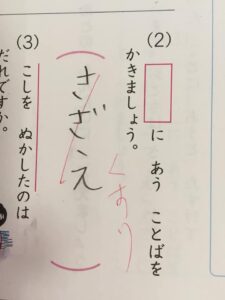 (2)
□に あう ことばを
かきましょう。
さざえ
くすり
(3)
こしを ぬかしたのは
だれですか。